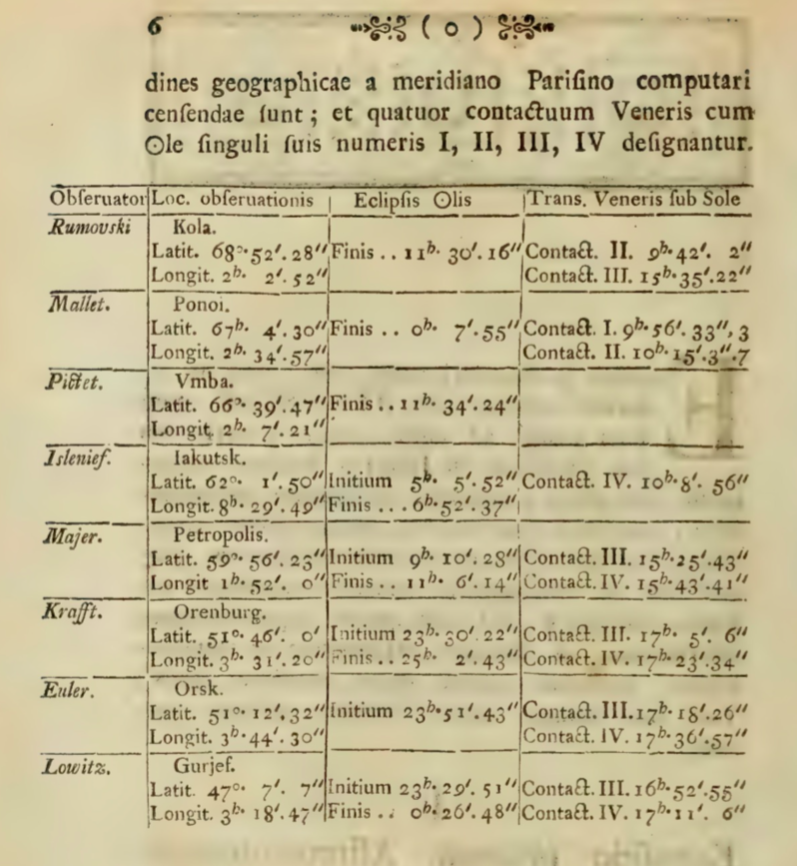 6 ( o )
dines geographicae a meridiano Pariſino computari
cenſendae ſunt; et quatuor contactuum Veneris cum
☉le ſinguli ſuis numeris I, II, III, IV deſignantur.
Obſeruator Loc. obſeruationis Eclipſis ☉lis Trans. Veneris ſub Sole
Rumovski Kola.
Latit. 68°. 52′. 28″ Finis .. 11h. 30′. 16″ Contact. II. 9h. 42′. 2″
Longit. 2h. 2′. 52″ Contact. III. 15h. 35′. 22″
Mallet. Ponoi.
Latit. 67h. 4′. 30″ Finis .. 0h. 7′. 55″ Contact. I. 9h. 56′. 33″, 3
Longit. 2h. 34′. 57″ Contact. II. 10h. 15′. 3″. 7
Pictet. Vmba.
Latit. 66°. 39′. 47″ Finis .. 11h. 34′. 24″
Longit. 2h. 7′. 21″
Islenief. Iakutsk.
Latit. 62°. 1′. 50″ Initium 5h. 5′. 52″ Contact. IV. 10h. 8′. 56″
Longit. 8h. 29′. 49″ Finis ... 6h. 52′. 37″
Majer. Petropolis.
Latit. 59°. 56′. 23″ Initium 9h. 10′. 28″ Contact. III. 15h. 25′. 43″
Longit 1h. 52′. 0″ Finis .. 11h. 6′. 14″ Contact. IV. 15h. 43′. 41″
Krafft. Orenburg.
Latit. 51°. 46′. 0′ Initium 23h. 30′. 22″ Contact. III. 17h. 5′. 6″
Longit. 3h. 31′. 20″ Finis .. 25h. 2′. 43″ Contact. IV. 17h. 23′. 34″
Euler. Orsk.
Latit. 51°. 12′. 32″ Initium 23h. 51′. 43″ Contact. III. 17h. 18′. 26″
Longit. 3h. 44′. 30″ Contact. IV. 17h. 36′. 57″
Lowitz. Gurjef.
Latit. 47°. 7′. 7″ Initium 23h. 29′. 51″ Contact. III. 16h. 52′. 55″
Longit. 3h. 18′. 47″ Finis .. 0h. 26′. 48″ Contact. IV. 17h. 11′. 6″